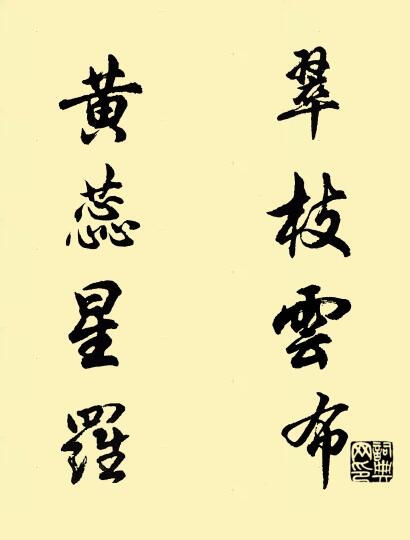 翠枝雲布
黃蕊星羅
詞典网印